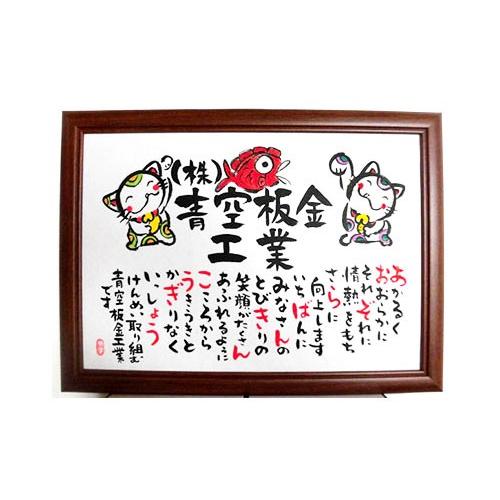 (株)
青空板金
工業
あかるく
おおらかに
それぞれに
情熱をもち
さらに
向上します
いちばんに
みなさんの
とびきりの
笑顔がたくさん
あふれるように
こころから
うきうきと
かぎりなく
いっしょう
けんめい取り組む
青空板金工業
です